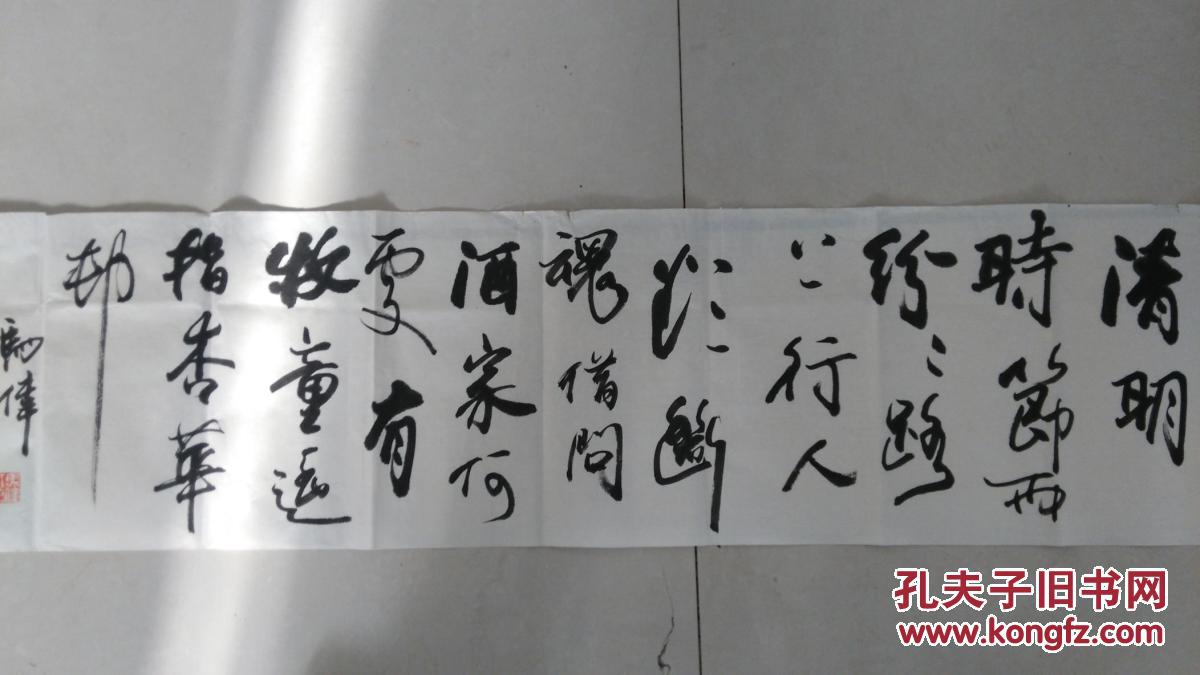 清明
時節雨
紛〻路
上行人
欲斷
魂借問
酒家何
處有
牧童遥
指杏華
邨
偉
孔夫子旧书网
www.kongfz.com